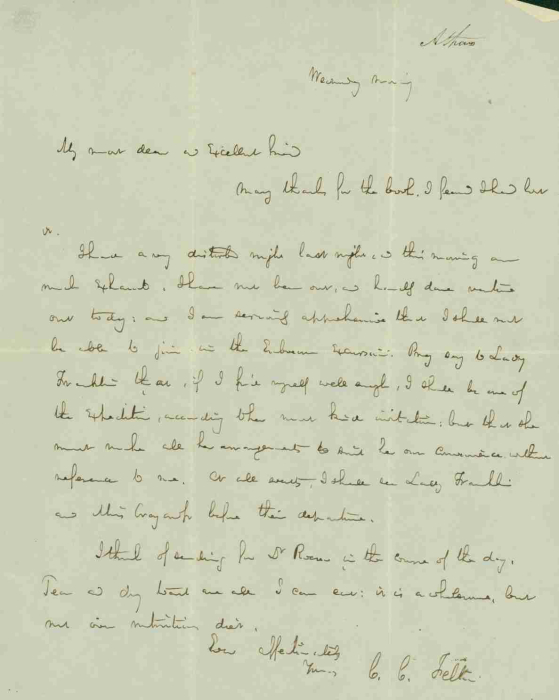 Athens
Wednesday Morning
My most dear and Excellent friend
Many thanks for the book. I feared I had lost
it.
I had a very disturbed night last night, and this morning am
much exhausted. I have not been out, and hardly dare venture
out today: and I am seriously apprehensive that I shall not
be able to join in the Excursion. Pray say to Lady
Franklin that, if I find myself well enough, I shall be one of
the Expedition, according to her most kind invitation; but that she
must make all her arrangements to suit her own convenience, without
reference to me. At all events, I shall see Lady Franklin
and Miss Cracroft before their departure.
I think of sending for Dr Roeser in the course of the day.
Tea and dry toast are all I can eat: it is a wholesome, but
not over nutritious diet.
Ever affectionately
Yours C. C. Felton